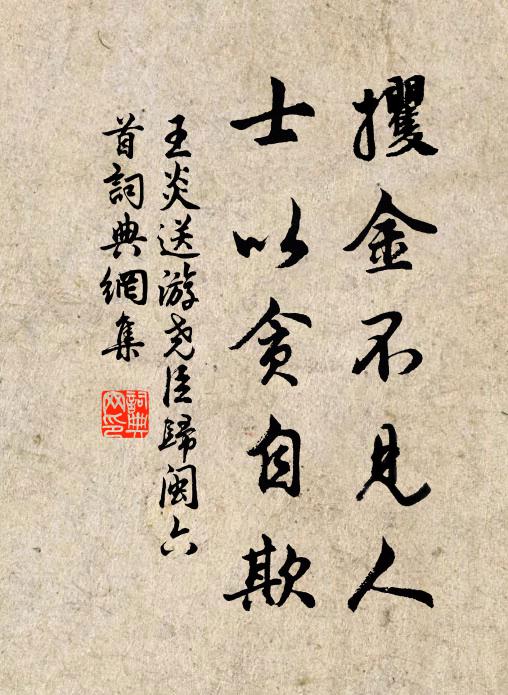 攫金不見人
士以貪自欺
王炎送游堯臣歸閩六
首詞典網集
詞典
网印